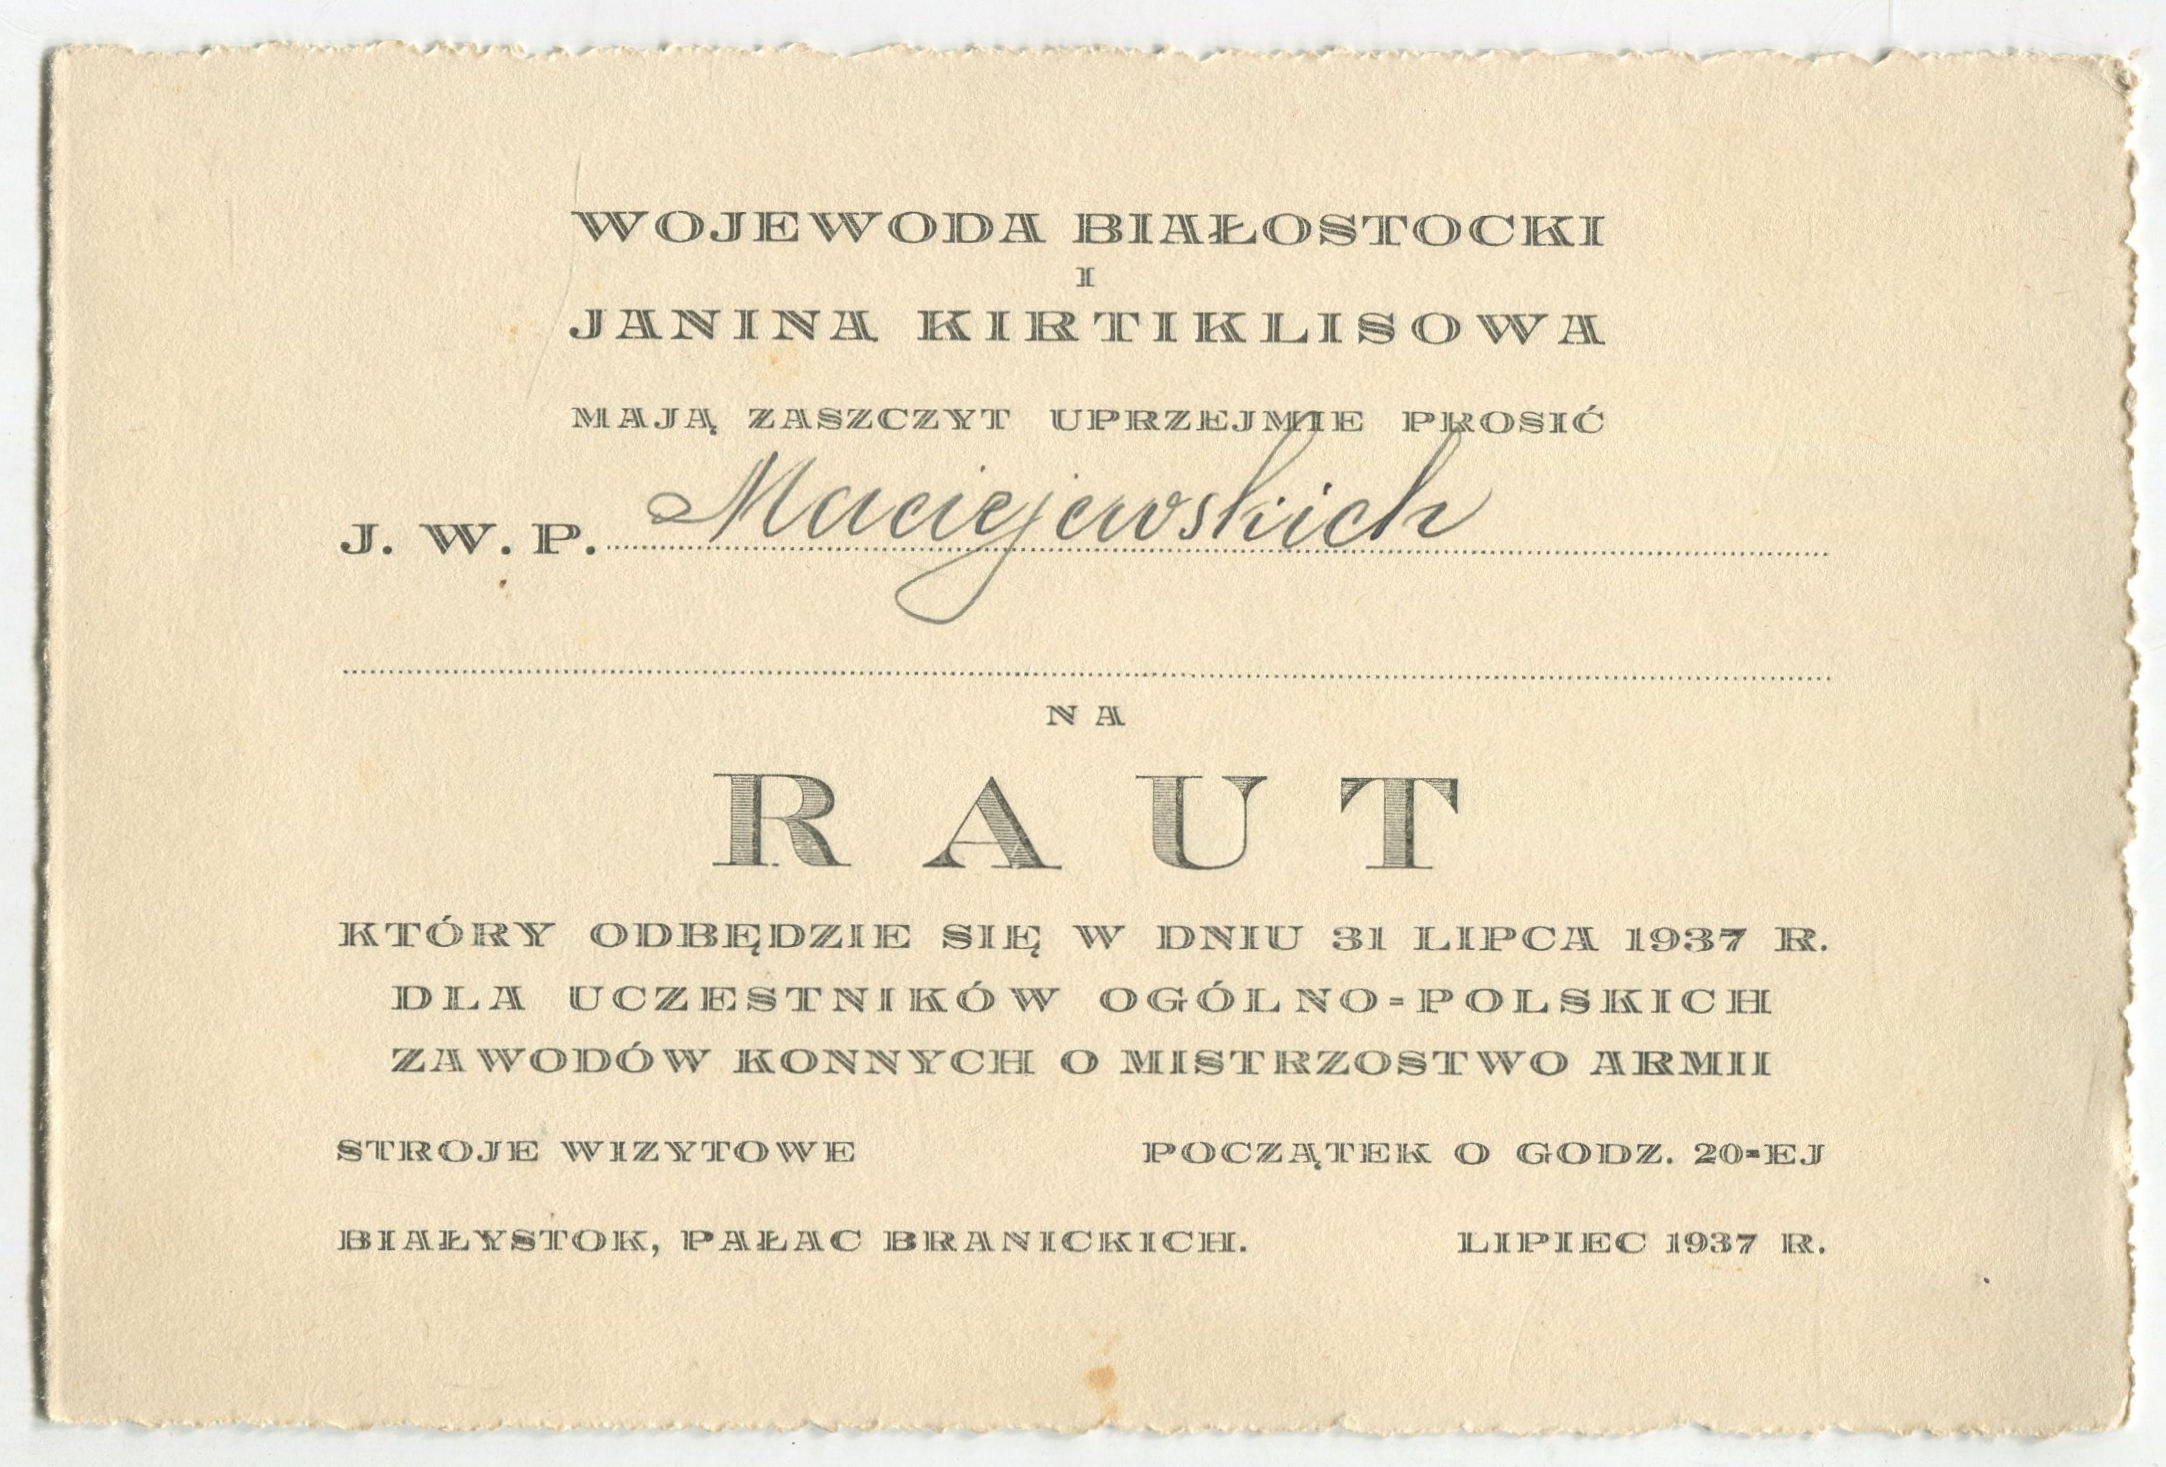 WOJEWODA BIAŁOSTOCKI
I
JANINA KIRTIKLISOWA
MAJĄ ZASZCZYT UPRZEJMIE PROSIĆ
J. W. P. Maciejewskich
NA
RAUT
KTÓRY ODBĘDZIE SIĘ W DNIU 31 LIPCA 1937 R.
DLA UCZESTNIKÓW OGÓLNO-POLSKICH
ZAWODÓW KONNYCH O MISTRZOSTWO ARMII
STROJE WIZYTOWE POCZĄTEK O GODZ. 20-EJ
BIAŁYSTOK, PAŁAC BRANICKICH. LIPIEC 1937 R.